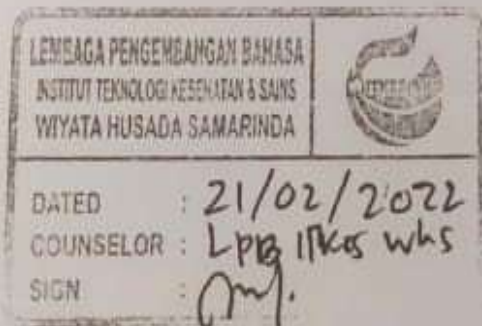 LEMBAGA PENGEMBANGAN BAHASA
INSTITUT TEKNOLOGI KESEHATAN & SAINS
WIYATA HUSADA SAMARINDA
DATED : 21/02/2022
COUNSELOR : LPB ITKes WHS
SIGN :